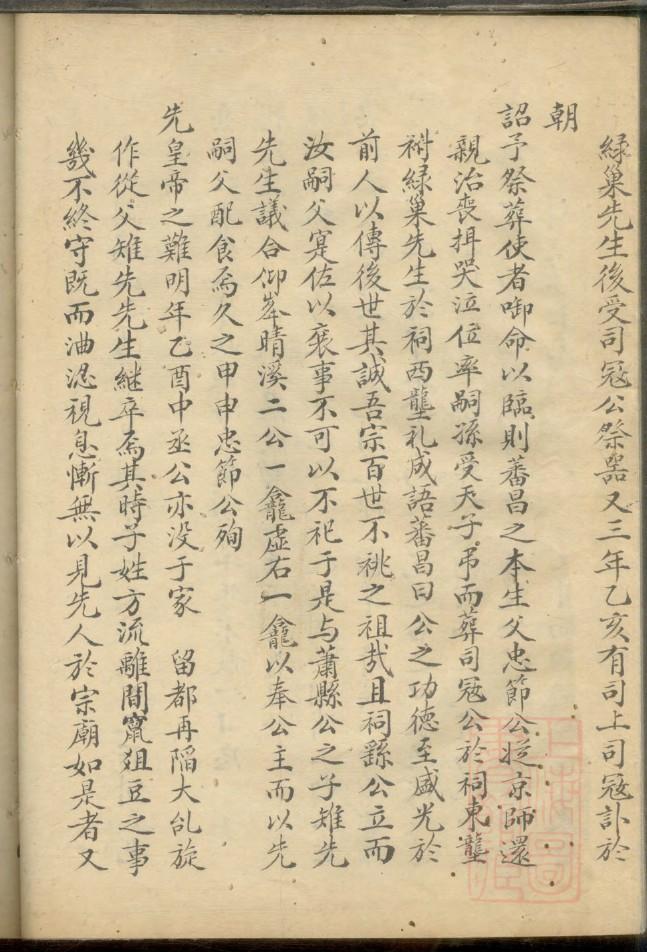 綠巢先生後受司寇公祭器又三年乙亥有司上司寇訃於
朝
詔予祭葬使者啣命以臨則蕃昌之本生父忠節公從京師還
親治喪揖哭泣位率嗣孫受天子吊而葬司寇公於祠東壟
祔綠巢先生於祠西壟礼成語蕃昌曰公之功德至盛光於
前人以傳後世其誠吾宗百世不祧之祖哉且祠繇公立而
汝嗣父寔佐以襄事不可以不祀于是与蕭縣公之子雉先
先生議合仰峯晴溪二公一龕虛右一龕以奉公主而以先
嗣父配食焉久之甲申忠節公殉
先皇帝之難明年乙酉中丞公亦没于家 留都再陷大乱旋
作從父雉先先生継卒焉其時子姓方流離間竄俎豆之事
幾不終守既而洫涊視息慚無以見先人於宗廟如是者又